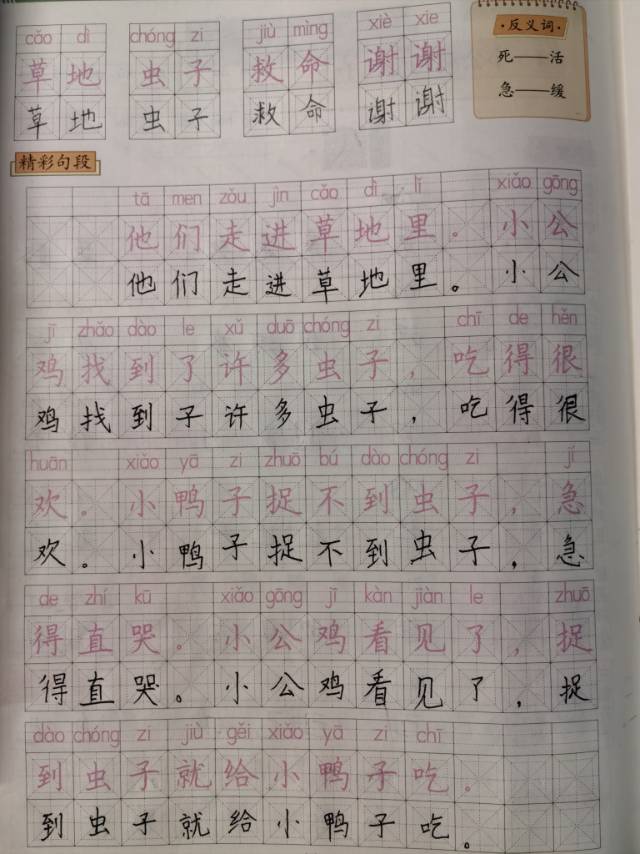 cǎo dì chóng zi jiù mìng xiè xie
草地 虫子 救命 谢谢
草地 虫子 救命 谢谢
·反义词·
死——活
急——缓
精彩句段
tā men zǒu jìn cǎo dì lǐ xiǎo gōng
他们走进草地里。小公
他们走进草地里。小公
jī zhǎo dào le xǔ duō chóng zi chī de hěn
鸡找到了许多虫子，吃得很
鸡找到子许多虫子，吃得很
huān xiǎo yā zi zhuō bú dào chóng zi jí
欢。小鸭子捉不到虫子，急
欢。小鸭子捉不到虫子，急
de zhí kū xiǎo gōng jī kàn jiàn le zhuō
得直哭。小公鸡看见了，捉
得直哭。小公鸡看见了，捉
dào chóng zi jiù gěi xiǎo yā zi chī
到虫子就给小鸭子吃。
到虫子就给小鸭子吃。